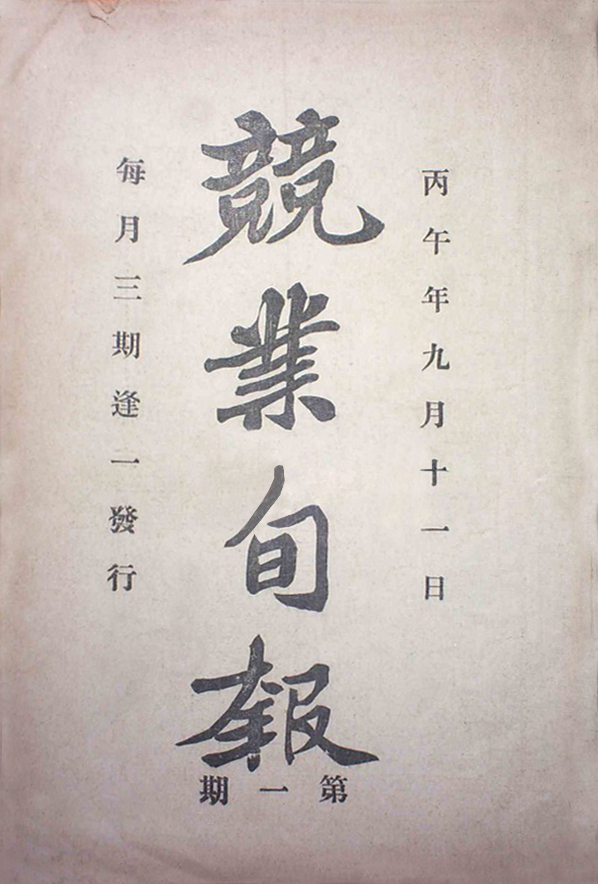 丙午年九月十一日
競業旬報
第一期
每月三期逢一發行